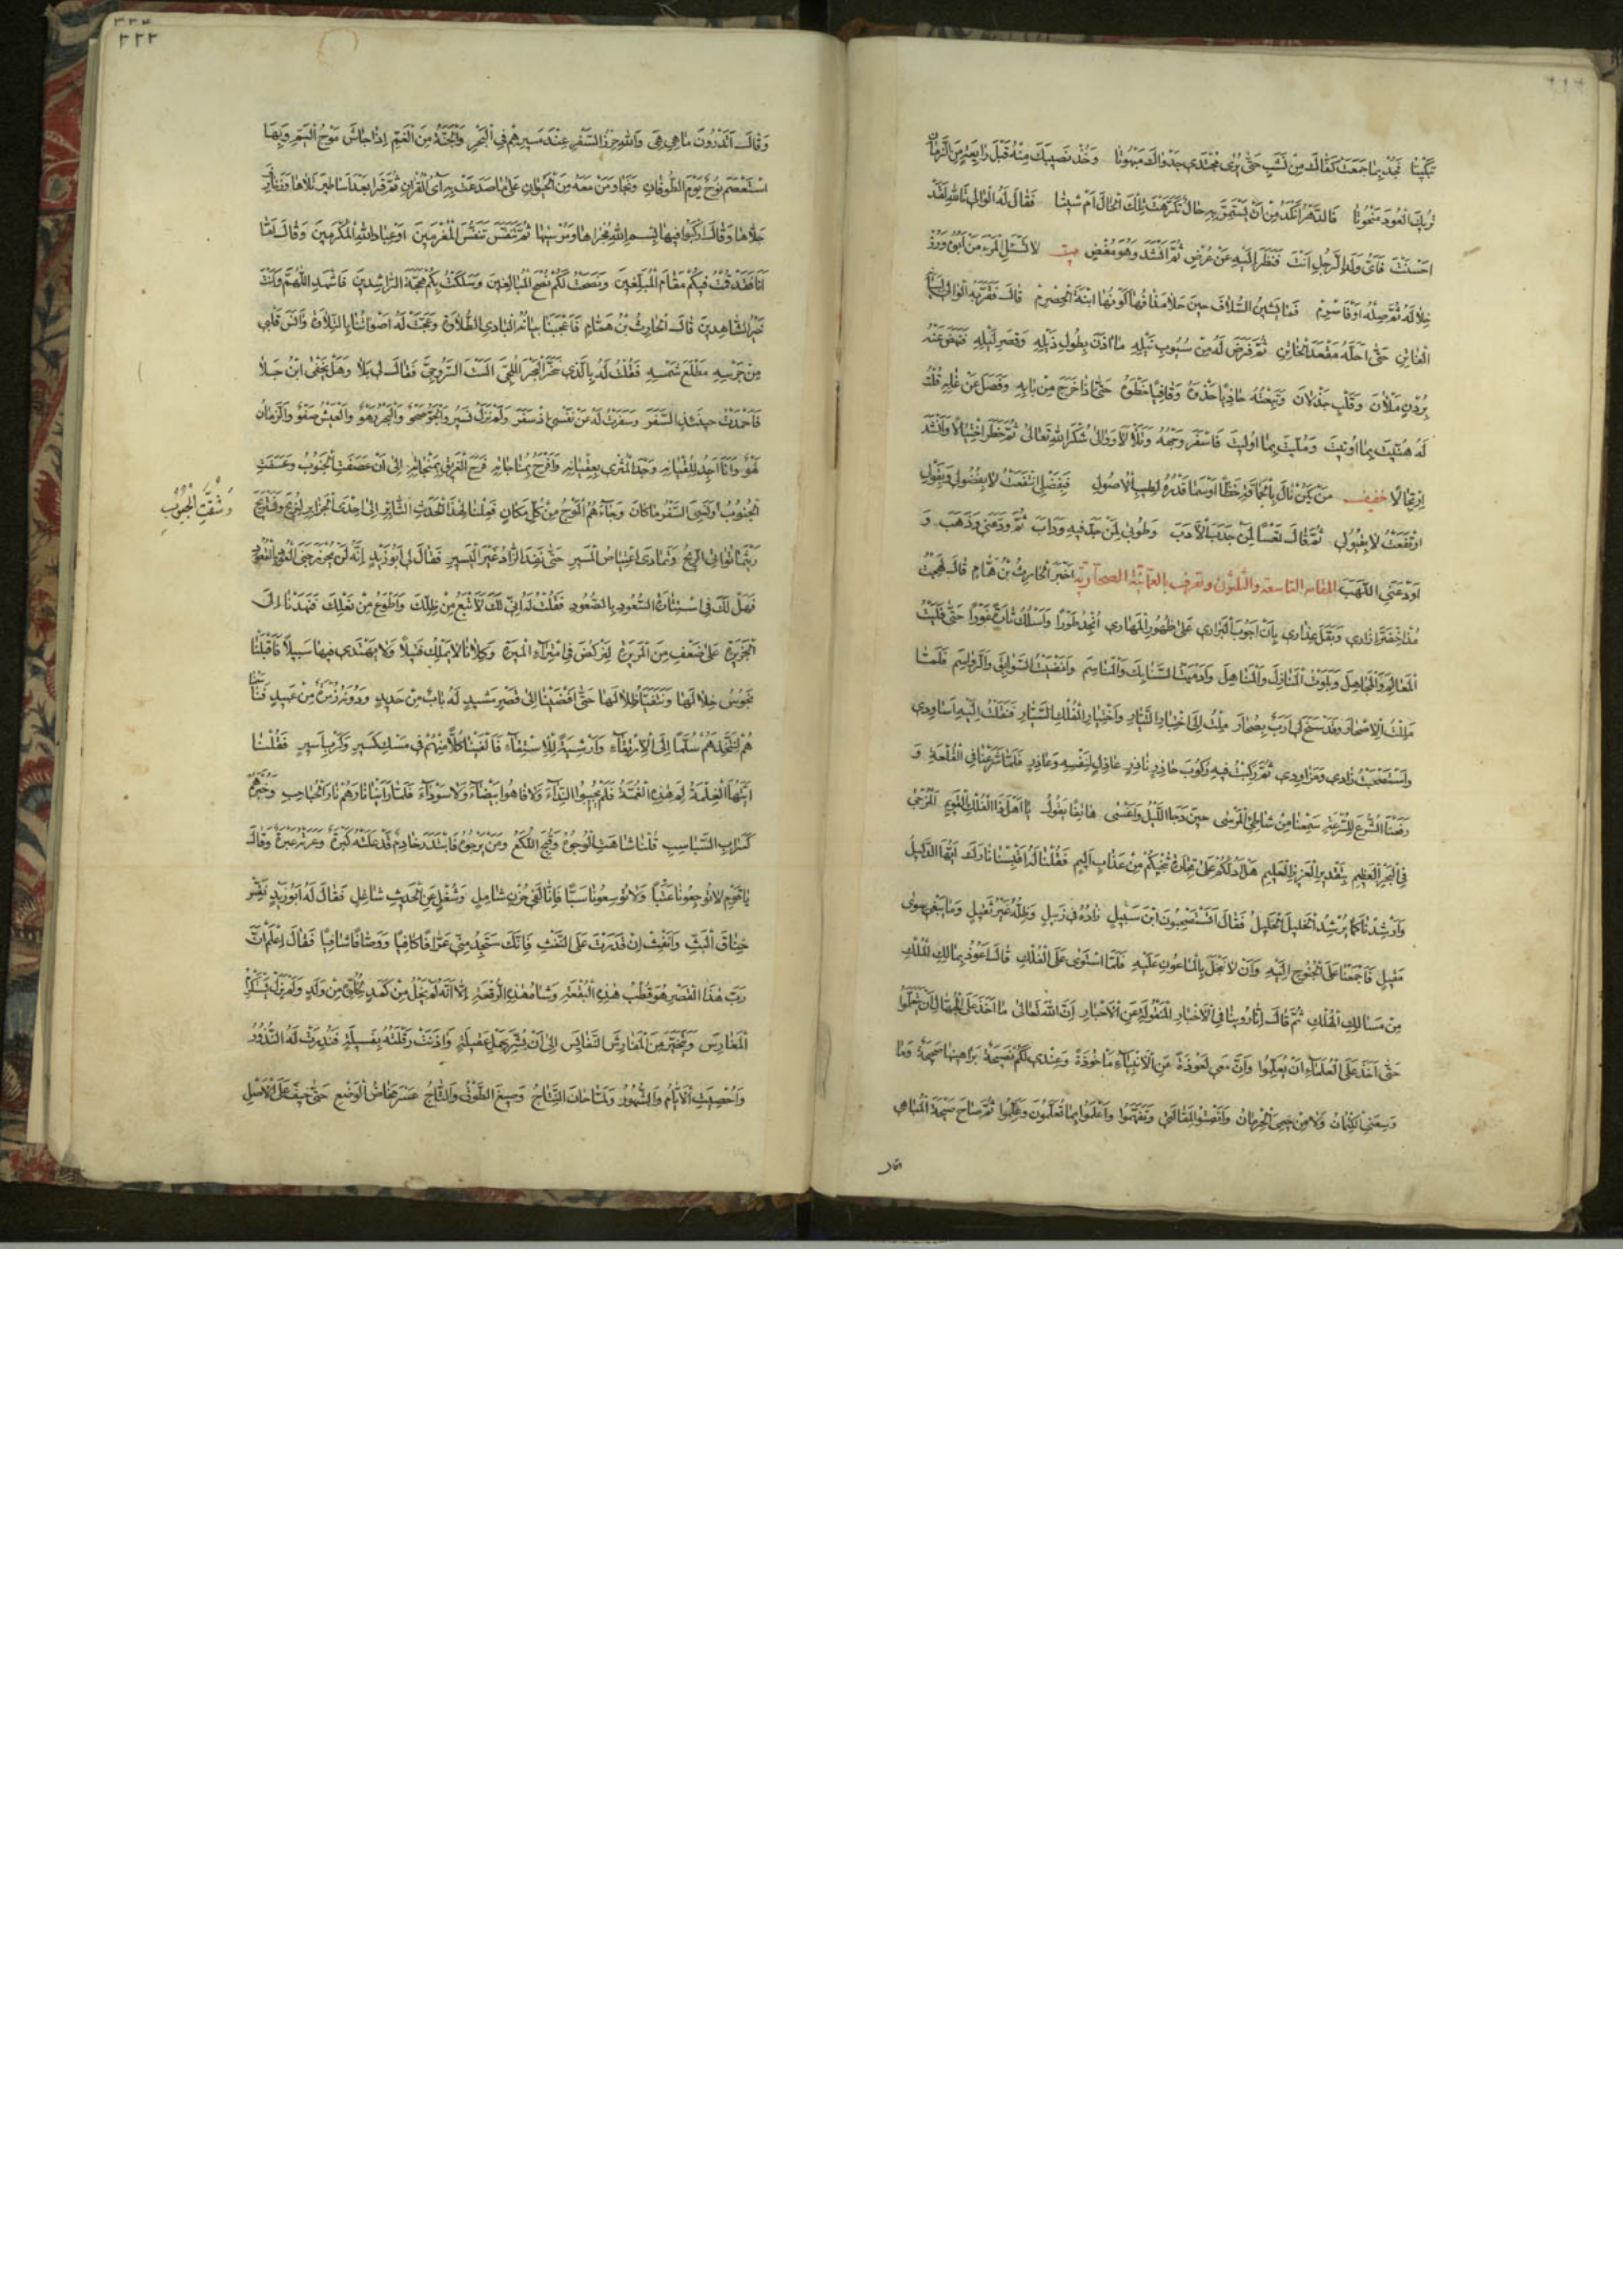 تبكيتا فجد بما جمعت كفاك من نشب حتى يرى مجتدي جدواك مبهوتا وخذ نصيبك منه قبل رابعة من الزمان
تريك العود منحوتا فالدهر انكد من ان يستمر به حال تكرهت تلك الحال ام شيتا فقال له الوالي تالله لقد
احسنت فاي ولد الرجل انت فنظر اليه عن عرض ثم انشد وهو مغض بيت لا تسئل المرء من ابوه ورز
خلاله ثم صله او فاصرم فما يشين السلاف حين حلا مذاقها كونها ابنة الحصرم قال فقربه الوالي لبيانه
الفاتن حتى احله مقعد الخاتن ثم فرض له من سيوب نيله ما آذن بطول ذيله وقصر ليله فنهض عنه
بردن ملآن وقلب جذلان وتبعته حاذيا حذوه وقافيا خطوه حتى اذا خرج من بابه وفصل عن غابه قلت
له هنيت بما اوتيت ومليت بما اوليت فاسفر وجهه وتلألأ ووالى شكرا لله تعالى ثم خطر اختيالا وانشد
ارتجالا خفيف من يكن نال بالحماقة حظا او سما قدره لطيب الاصول فبفضلي انتفعت لا بفضولي وبقولي
ارتفعت لا بقيولي ثم قال تعسا لمن جدب الادب وطوبى لمن جد فيه وداب ثم ودعني وذهب و
اودعني اللهب المقامة التاسعة والثلثون وتعرف بالعمانية الصحاوية اخبر الحارث بن همام قال لهجت
مذ اخضر ازاري وبقل عذاري بان اجوب البراري على ظهور المهاري انجد طورا واسلك تارة غورا حتى فليت
المعالم والمجاهل وبلوت المنازل والمناهل وادميت السنابك والمناسم وانضيت السوابق والرواسم فلما
مللت الاصحار وقد سنح لي ارب بصحار ملت الى اختيار التيار واختيار الفلك السيار فنقلت اليه اساودي
واستصحبت زادي ومزاودي ثم ركبت فيه ركوب حاذر ناذر عاذل لنفسه وعاذر فلما شرعنا في القلعة و
رفعنا الشرع للسرعة سمعنا من شاطئ المرسى حين دجا الليل واغسى هاتفا يقول يا اهل ذا الفلك القويم المزجى
في البحر العظيم بتقدير العزيز العليم هل ادلكم على تجارة تنجيكم من عذاب اليم فقلنا له اقبسنا نارك ايها الدليل
وارشدنا كما يرشد الخليل الخليل فقال اتستصحبون ابن سبيل زاده في زبيل وظله غير ثقيل وما يبغي سوى
مقيل فاجمعنا على الجنوح اليه وان لا نبخل بالماعون عليه فلما استوى على الفلك قال اعوذ بمالك الملك
من مسالك الهلك ثم قال انا روينا في الاخبار المنقولة عن الاحبار ان الله تعالى ما اخذ على الجهال ان يتعلموا
حتى اخذ على العلماء ان يعلموا وان معي لعوذة عن الانبياء ماخوذة وعندي لكم نصيحة براهينها صحيحة وما
وسعني الكتمان ولا من خيمي الحرمان فانصتوا لمقالتي وتفهموا واعلموا بما تعلمون وعلموا ثم صاح صيحة المباهي
وقال
٢٢٢
وقال اتدرون ما هي هي والله حرز السفر عند مسيرهم في البحر والجنة من الغم اذا جاش موج اليم وبها
استعصم نوح يوم الطوفان ونجا ومن معه من الحيوان على ما صدعت به آي القرآن ثم قرا بعد اساطير تلاها وزخارف
جلاها وقال اركبوا فيها بسم الله مجراها ومرسيها ثم تنفس تنفس المغرمين او عباد الله المكرمين وقال اما
انا فقد قمت فيكم مقام المبلغين ونصحت لكم نصح المبالغين وسلكت بكم محجة الراشدين فاشهد اللهم وانت
خير الشاهدين قال الحارث بن همام فاعجبنا بيانه البادي الطلاوة وعجت له اصواتنا بالتلاوة وآنس قلبي
من جرسه مطلع شمسه فقلت له بالذي سخر البحر اللجي الست السروجي فقال لي بلا وهل يخفى ابن جلا
فاحمدت حينئذ السفر وسفرت له عن نفسي اذ سفر ولم نزل نسير والجو صحو والبحر رهو والعيش صفو والزمان
لهو وانا اجد للقيانه وجد المثري بعقيانه وافرح بمناجاته فرح الغريق بمنجاته الى ان عصفت الجنوب وعسفت
الجنوب ونسي السفر ما كان وجاءهم الموج من كل مكان فملنا لهذا الحدث الثائر الى احدى الجزائر لنريح ونستريح
وشقت الجيوب
ريثما تواتي الريح وتمادى اعتياص المسير حتى نفد الزاد غير اليسير فقال لي ابو زيد انه لن يحرز جنى العود بالقعود
فهل لك في استثارة السعود بالصعود فقلت له اني لك لاتبع من ظلك واطوع من نعلك فنهدنا الى
الجزيرة على ضعف من المريرة لنركض في امتراء الميرة وكلانا لا يملك فتيلا ولا يهتدي فيها سبيلا فاقبلنا
نجوس خلالها ونتفيأ ظلالها حتى افضينا الى قصر مشيد له باب من حديد ودونه زمرة من عبيد فناسمنا
هم لنتخذهم سلما الى الارتقاء وارشية للاستقاء فالفينا كلا منهم في مسك كسير وكرب اسير فقلنا
ايتها الغلمة لم هذه الغمة فلم يجيبوا النداء ولا فاهوا ببيضاء ولا سوداء فلما راينا نارهم نار الحباحب وخبرهم
كسراب السباسب قلنا شاهت الوجوه وقبح اللكع ومن يرجوه فابتدر خادم قد علته كبرة وعرته عبرة وقال
يا قوم لا توجعونا عتبا ولا توسعونا سبا فانا لفي حزن شامل وشغل عن الحديث شاغل فقال له ابو زيد نفس
خناق البث وانفث ان قدرت على النفث فانك ستجد مني عرافا كافيا ووصافا شافيا فقال اعلم ان
رب هذا القصر هو قطب هذه البقعة وشاه هذه الرقعة الا انه لم يخل من كمد لخلوه من ولد ولم يزل يستكرم
المغارس ويتخير من المفارش النفايس الى ان بشر بحمل عقيلة وآذنت رقلته بفسيلة فنذرت له النذور
واحصيت الايام والشهور ولما حان النتاج وصيغ الطوق والتاج عسر مخاض الوضع حتى خيف على الاصل